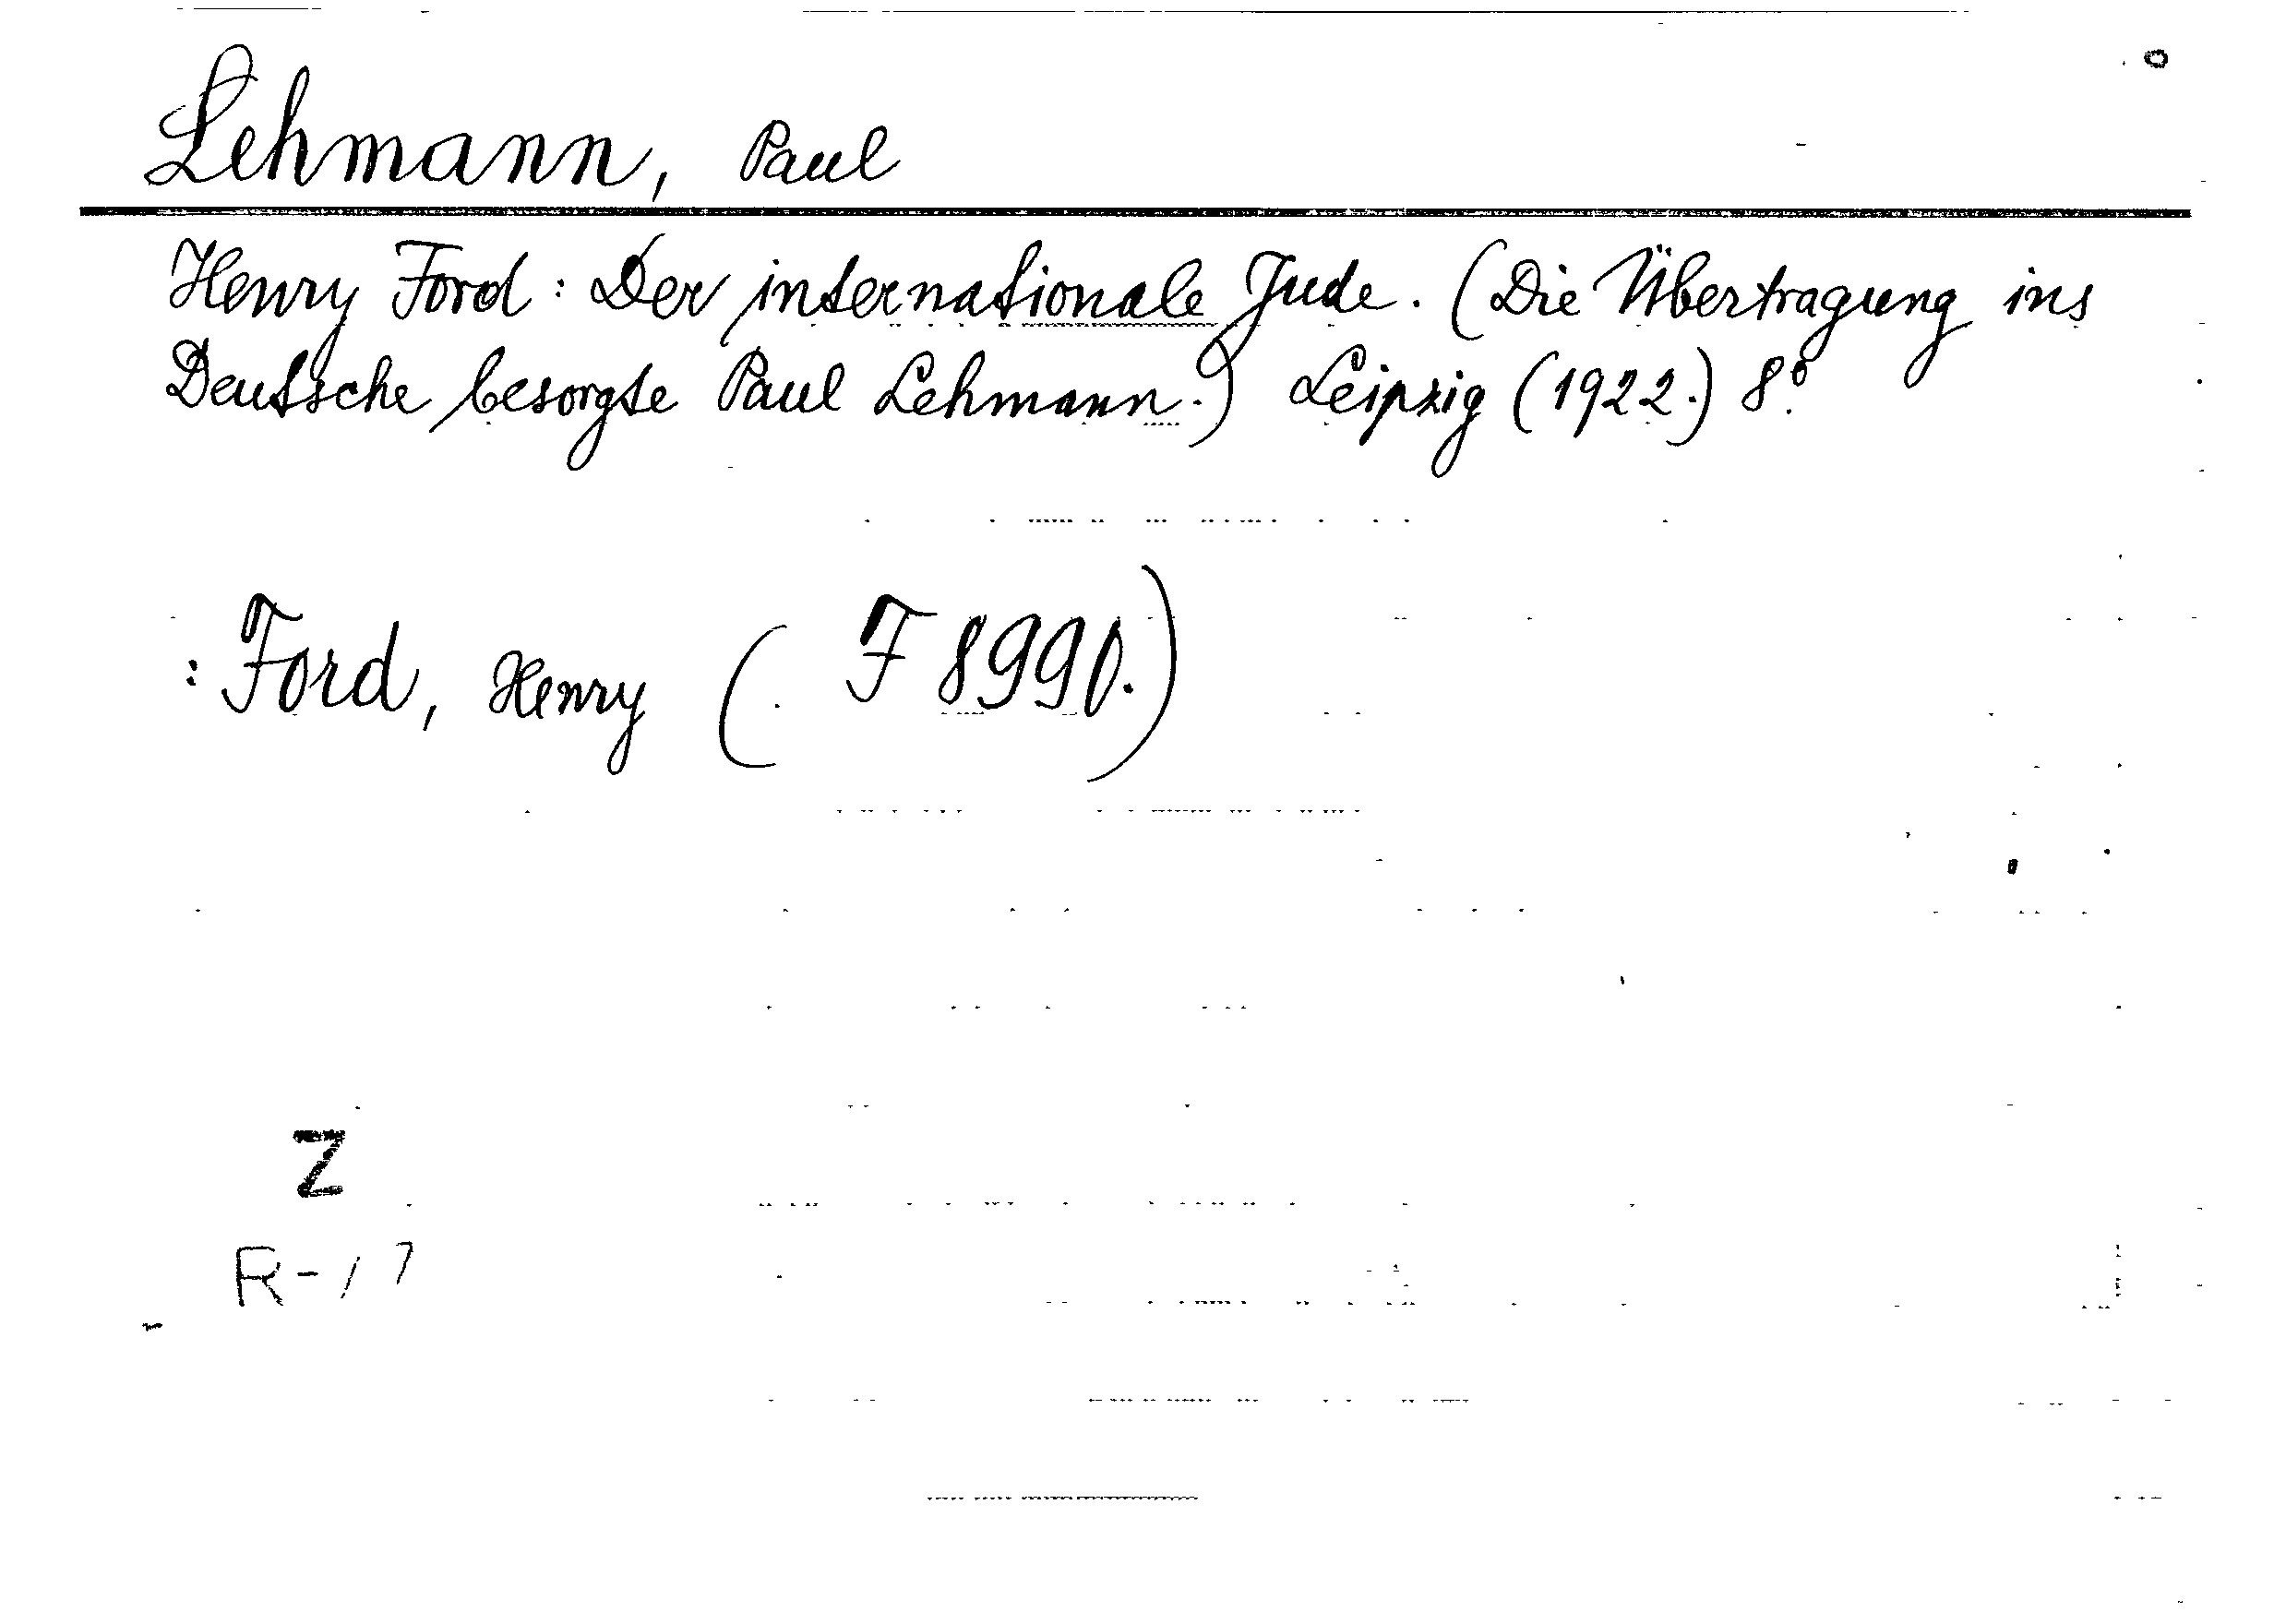 Lehmann, Paul
Henry Ford: Der internationale Jude. (Die Übertragung ins
Deutsche besorgte Paul Lehmann.) Leipzig (1922.) 8°.
: Ford, Henry (F 8990.)
Z
R-17